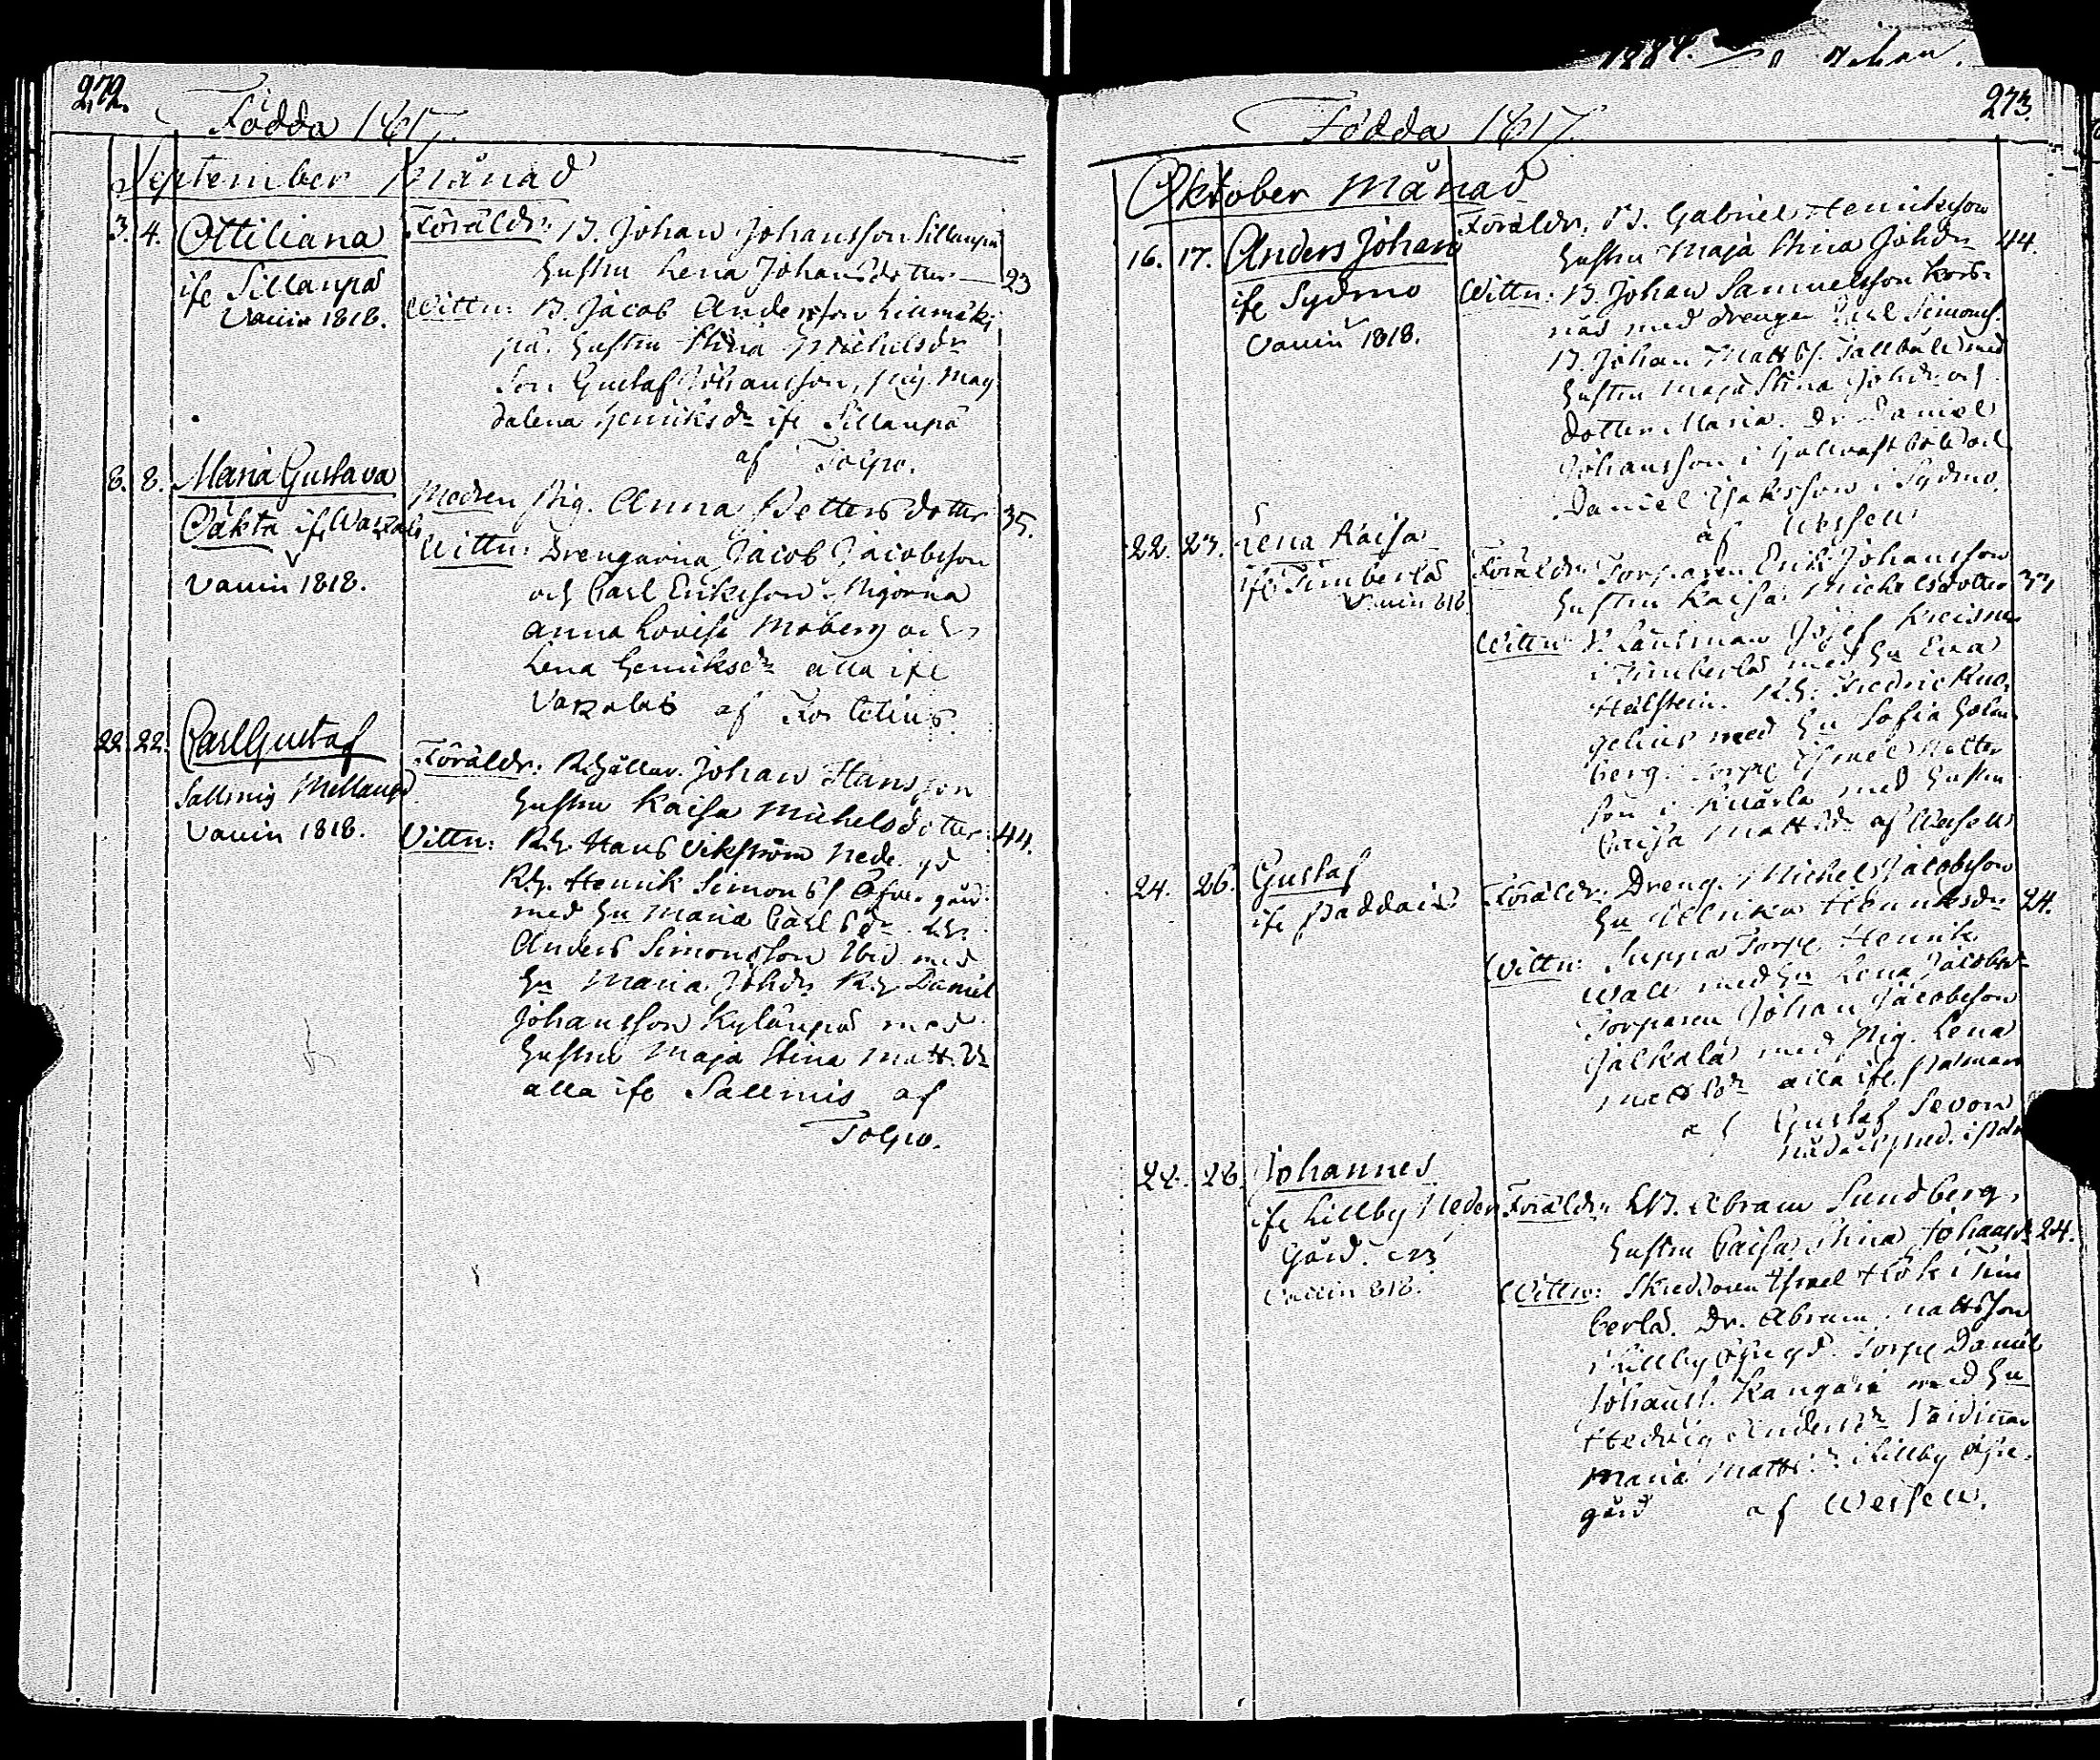 272.
Födda 1817.
September Månad
3. 4. Ottiliana
ifr Sillanpää
Vaccin 1818.
Föräldr: B. Johan Johansson Sillanpää
Hustru Lena Johansdotter 23
Wittn: B. Jacob Andersson Liinmäki
på. Hustru Stina Michelsdr
Son Gustaf Johansson, pig. Mag
dalena Henriksdr ifr Sillanpä
af Tolpo.
8. 8. Maria Gustava
Oäkta ifr Waxala
Vaccin 1818.
Modren Pig. Anna Pettersdotter 35.
Wittn: Drengarna Jacob Jacobsson
och Carl Eriksson. Pigorna
Anna Lovisa Moberg och
Lena Henriksdr alla ifr
Vaxala af Fortelius.
22. 22. Carl Gustaf
Sallmis Mellangd
Vaccin 1818.
Föräldr: Rhållar. Johan Hansson
Hustru Kaisa Michelsdotter 44.
Vittn: Rh. Hans Vikström Nede gd
Rh. Henrik Simonss Öfvergård
med Hu Maria Carlsdr. Rh.
Anders Simonsson Ibid. med
Hu Maria Johdr Rh Daniel
Johansson Kylänpää med
Hustru Maja Stina Mattsdr
alla ifr Sallmis af
Tolpo.
273.
Födda 1817.
Oktober Månad
16. 17. Anders Johan
ifr Sydmo
Vaccin 1818.
Föräldr. B. Gabriel Henriksson
Hustru Maja Stina Johdr 44.
Wittn: B. Johan Samuelsson Kors
näs med drenge Simonss.
B. Johan Mattss. Tallbäle med
Hustru Maja Stina Johdr och
dotter Maria. Dr Daniel
Johansson i och
Daniel Isaksson i Sydmo.
af Wessell
22. 23. Lena Kaisa
ifr Timberla
Vaccin 818
Föräldr: Torparen Erik Johansson
Hustru Kaisa Michelsdotter 37
Wittn: Länsman Josef
i Timberla med Hu Eva
Helstein. Rh. Fredric
gelius med Hu Sofia Holm
berg. Torp. Israel Matts
son i Knärla med Hustru
Caisa Mattsdr af Wessell
24. 26. Gustaf
ifr Paddais
Föräldr: Dreng. Michel Jacobsson
Hu Ulrika Henriksdr 24.
Wittn: Torp. Henrik
Wall med Hu Lena Jacobsdr
Torparen Johan Jacobsson
Jalkala med Pig. Lena
alla ifr
af Gustaf Sevon
28. 28. Johannes
ifr Lillby Neder
Gård.
Vaccin 818.
Föräldr: LB. Abram Sundberg,
Hustru Caisa Stina Johansdr 24.
Wittn: Skreddaren Israel Hök i Tim
berla. Dr. Abram Mattsson
i Lillby Öfregd. Torp. Daniel
Johanss. Kangare med Hu
Hedvig Andersdr
Maria Mattsdr i Lillby Öfre
gård af Wessell.